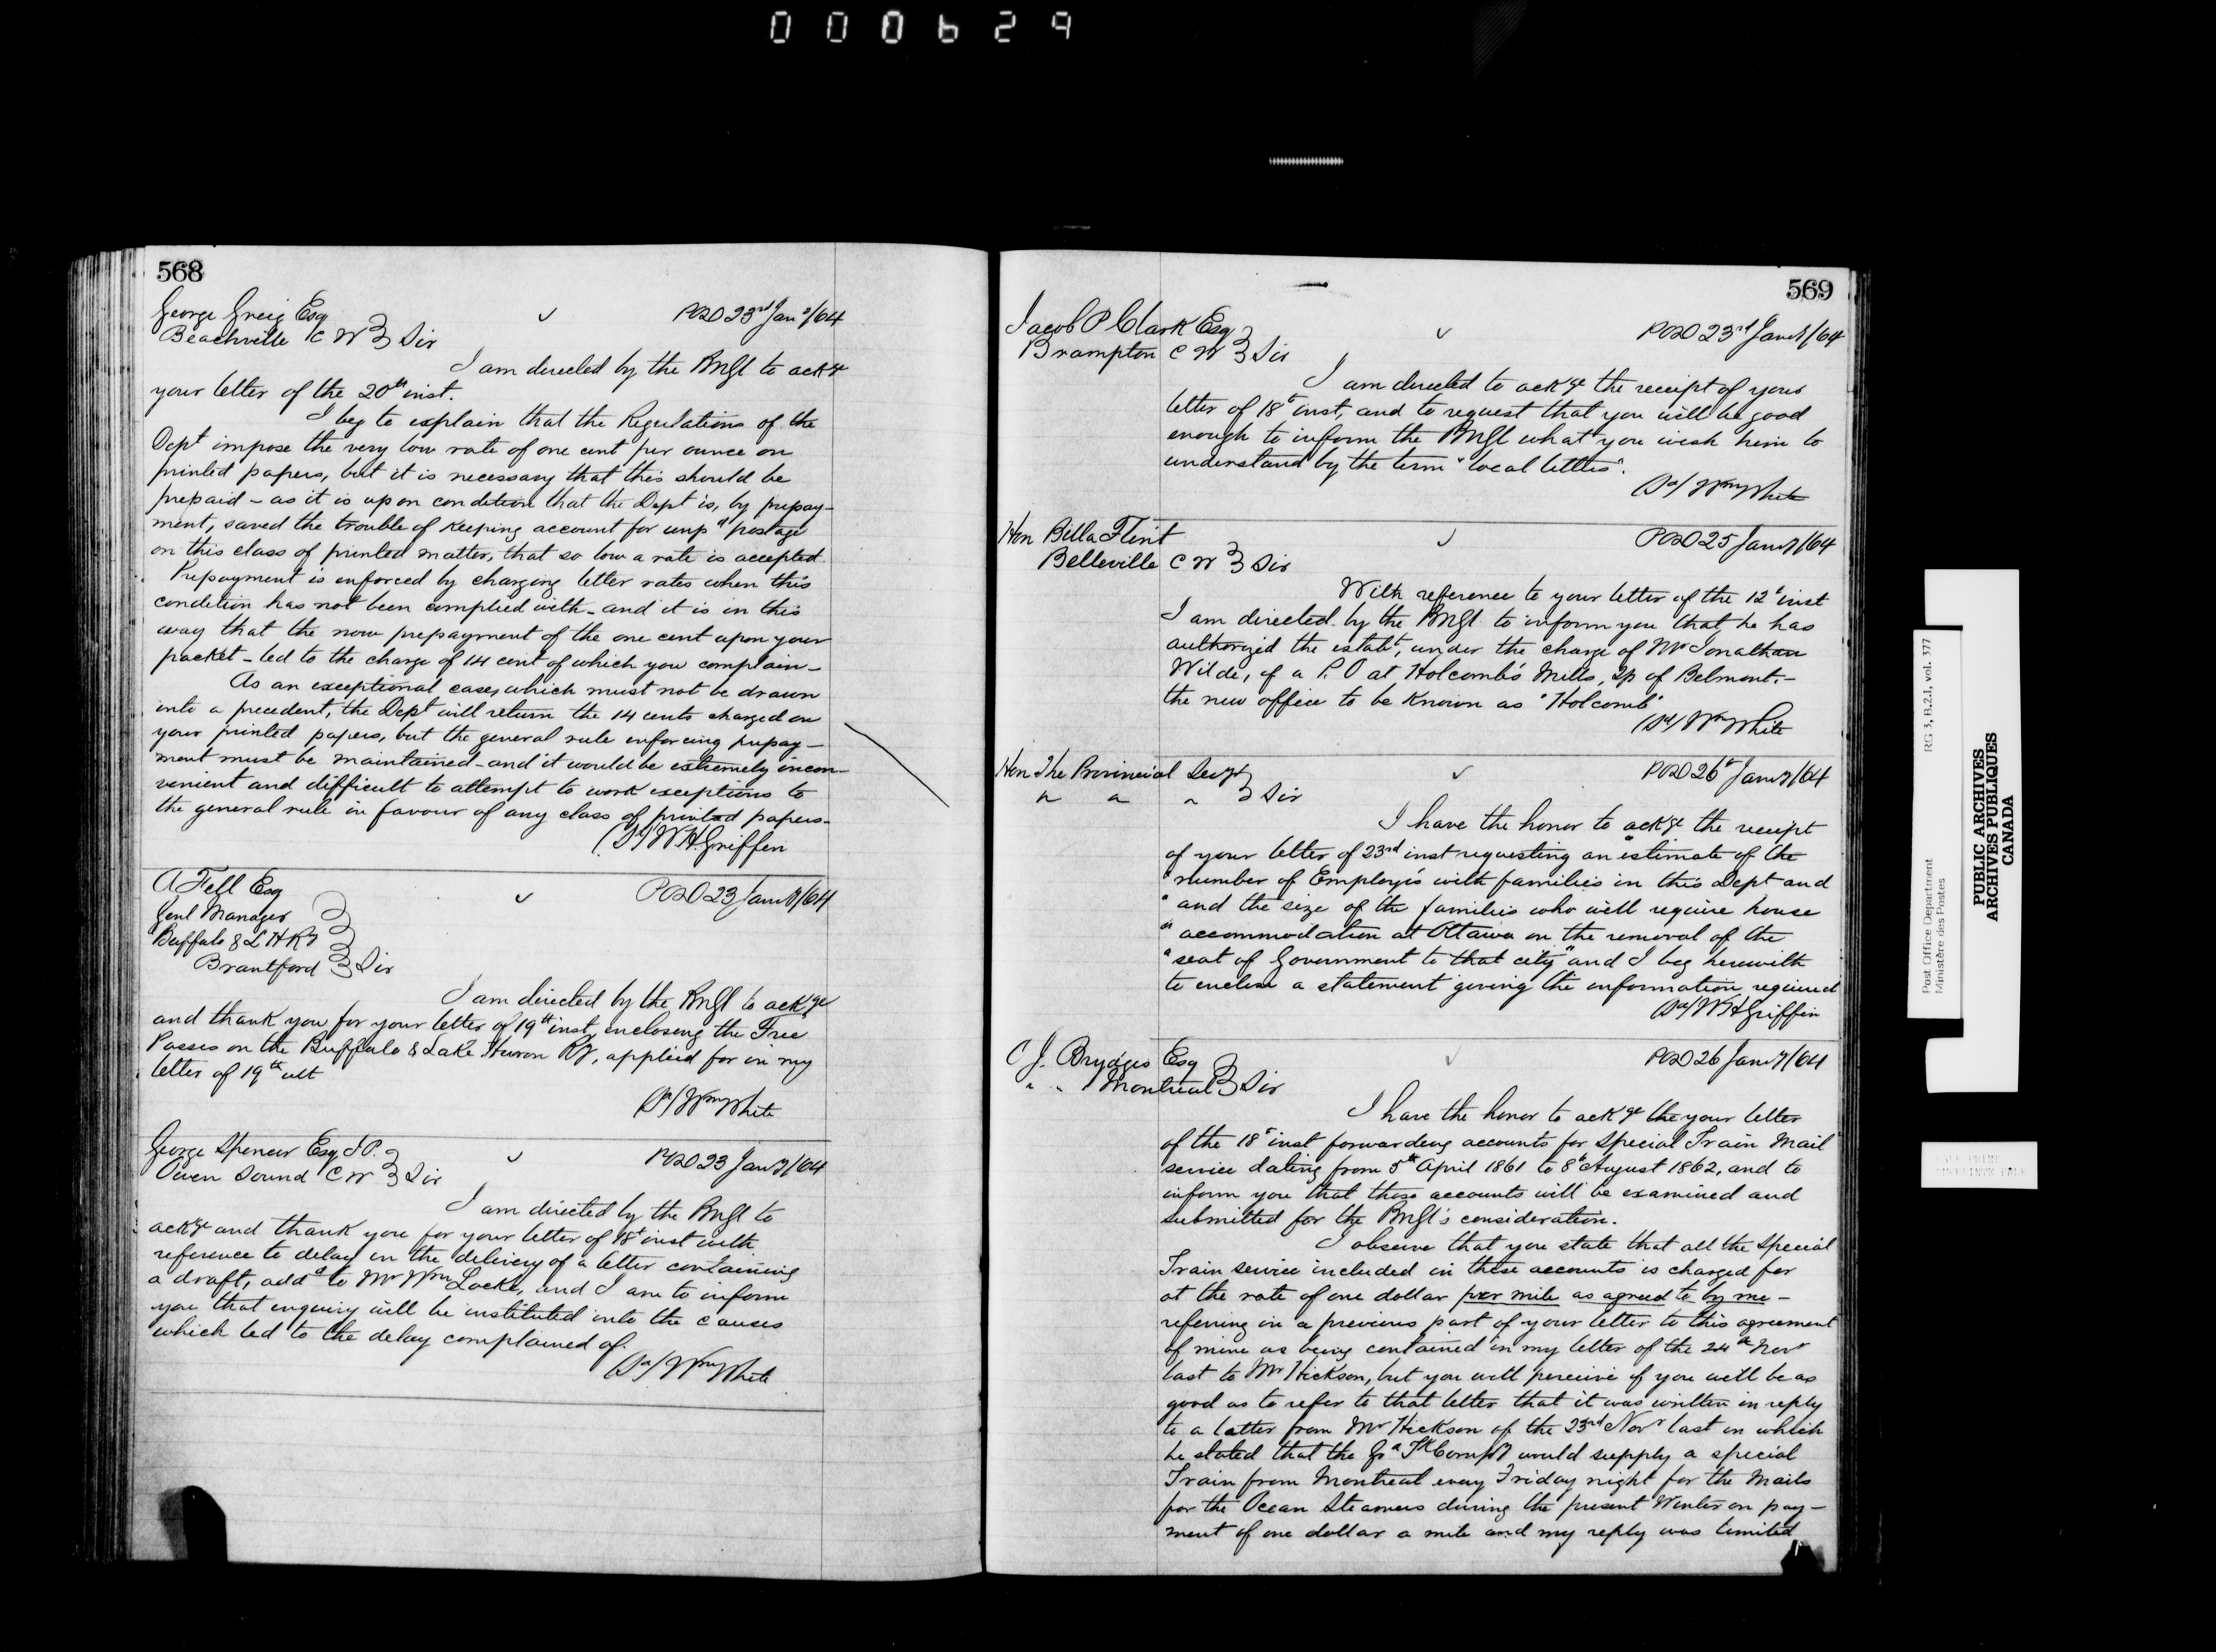 000629
568
George Greig Esq
Beachville C W } Sir
✓
POD 23rd Jany/64
I am directed by the PMGl to ackge
your letter of the 20th inst.
I beg to explain that the Regulations of the
Dept impose the very low rate of one cent per ounce on
printed papers, but it is necessary that this should be
prepaid – as it is upon condition that the Dept is, by prepay-
ment, saved the trouble of keeping account for unpd postage
on this class of printed matter, that so low a rate is accepted.
Prepayment is enforced by charging letter rates when this
condition has not been complied with – and it is in this
way that the non prepayment of the one cent upon your
packet – led to the charge of 14 cent of which you complain –
As an exceptional case, which must not be drawn
into a precedent, the Dept will return the 14 cents charged on
your printed papers, but the general rule enforcing prepay-
ment must be maintained – and it would be extremely incon-
venient and difficult to attempt to work exceptions to
the general rule in favour of any class of printed papers.
(Sd) W H Griffin
A Fell Esq
Genl Manager
Buffalo & L H Ry
Brantford } Sir
✓
POD 23 Jany/64
I am directed by the PMGl to ackge
and thank you for your letter of 19th inst, enclosing the Free
Passes on the Buffalo & Lake Huron Ry, applied for in my
letter of 19th ult
(Sd/ Wm White
George Spencer Esq J P.
Owen Sound C W } Sir
✓
POD 23 Jany/64
I am directed by the PMGl to
ackge and thank you for your letter of 18t inst with
reference to delay in the delivery of a letter containing
a draft, addd to Mr Wm Locke, and I am to inform
you that enquiry will be instituted into the causes
which led to the delay complained of.
(Sd/ Wm White
569
Jacob P Clark Esq
Brampton C W } Sir
✓
POD 23rd Jany/64
I am directed to ackge the receipt of your
letter of 18t inst, and to request that you will be good
enough to inform the PMGl what you wish him to
understand by the term "local letters".
(Sd/ Wm White
Hon Billa Flint
Belleville C W } Sir
✓
POD 25 Jany/64
With reference to your letter of the 12t inst
I am directed by the PMGl to inform you that he has
authorized the estabt, under the charge of Mr Jonathan
Wilde, of a P. O at Holcomb's Mills, Tp of Belmont. –
the new office to be known as "Holcomb"
(Sd/ Wm White
Hon The Provincial Secy
" " " } Sir
✓
POD 26t Jany/64
I have the honor to ackge the receipt
of your letter of 23rd inst requesting an "estimate of the
"number of Employés with families in this Dept and
" and the size of the families who will require house
" accommodation at Ottawa on the removal of the
" seat of Government to that city" and I beg herewith
to enclose a statement giving the information required
(Sd/ W H Griffin
C J. Brydges Esq
" " Montreal } Sir
✓
POD 26 Jany/64
I have the honor to ackge the your letter
of the 18t inst forwarding accounts for Special Train Mail
service dating from 5th April 1861 to 8t August 1862, and to
inform you that those accounts will be examined and
submitted for the PMGl's consideration.
I observe that you state that all the Special
Train service included in these accounts is charged for
at the rate of one dollar per mile as agreed to by me –
referring in a previous part of your letter to this agreement
of mine as being contained in my letter of the 24th Novr
last to Mr Hickson, but you will perceive if you will be as
good as to refer to that letter that it was written in reply
to a letter from Mr Hickson of the 23rd Novr last in which
he stated that the Gd Tk Compy would supply a special
Train from Montreal every Friday night for the Mails
for the Ocean Steamers during the present Winter on pay-
ment of one dollar a mile and my reply was limited
Post Office Department
Ministère des Postes
RG 3, B.2.1, vol. 377
PUBLIC ARCHIVES
ARCHIVES PUBLIQUES
CANADA